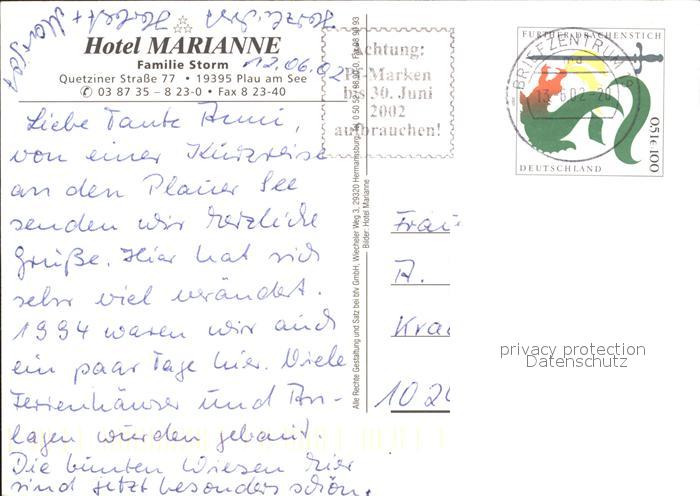 Hotel MARIANNE
Familie Storm
Quetziner Straße 77 • 19395 Plau am See
✆ 03 87 35 – 8 23-0 • Fax 8 23-40
12.06.02
Liebe Tante Anni,
von einer Kurzreise
an den Plauer See
senden wir herzliche
Grüße. Hier hat sich
sehr viel verändert.
1994 waren wir auch
ein paar Tage hier. Viele
Ferienhäuser und An-
lagen wurden gebaut.
Die bunten Wiesen hier
sind jetzt besonders schön.
Herzlichst Herbert +
Margot
Alle Rechte Gestaltung und Satz bei bfv GmbH, Wiecheler Weg 3, 29320 Hermannsburg,
Bilder: Hotel Marianne
Achtung:
Pf-Marken
bis 30. Juni
2002
aufbrauchen!
BRIEFZENTRUM
13.6.02-20
FURTHER DRACHENSTICH
0,51€ 100
DEUTSCHLAND
Frau
A.
Kra
102
privacy protection
Datenschutz